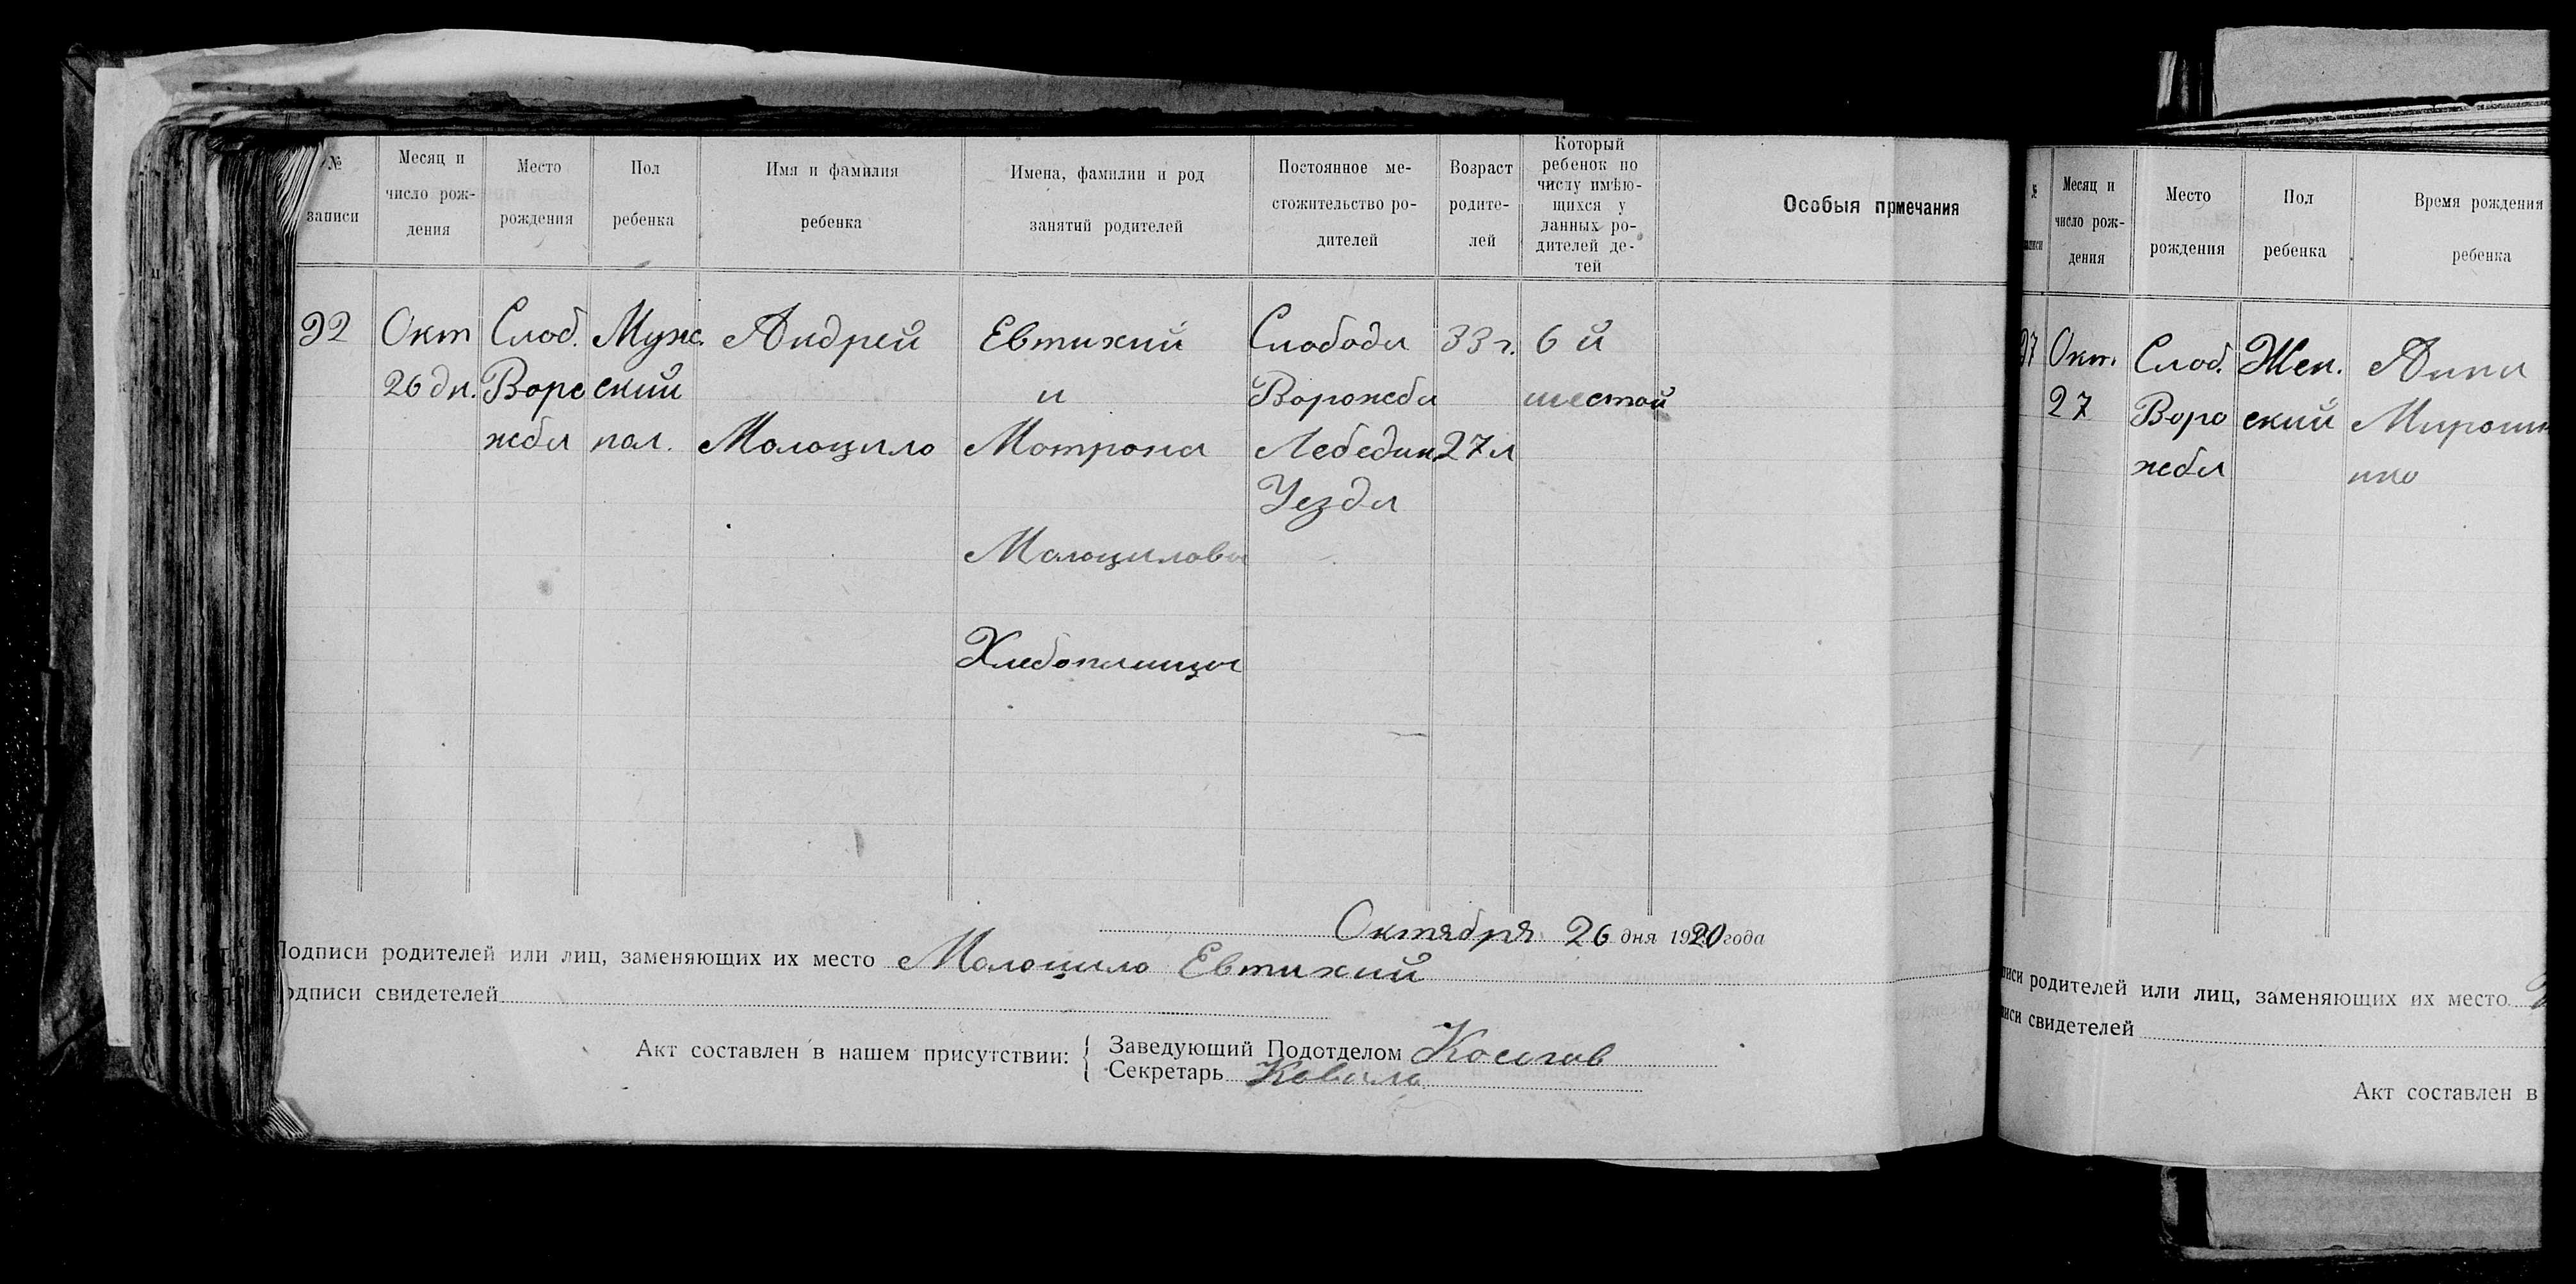 № записи
Месяц и число рождения
Место рождения
Пол ребенка
Имя и фамилия ребенка
Имена, фамилии и род занятий родителей
Постоянное местожительство родителей
Возраст родителей
Который ребенок по числу имѣющихся у данных родителей детей
Особыя примечания
Окт Слоб. Муж. Андрей Евтихий Слобода 33 г. 6 й
26 дн. Воро ский и Ворожба шестой
жба пол. Молоцило Мотрона Лебедин. 27 л
Уезда
Молоциловы
Хлебопашцы
Октября 26 дня 1920 года
Подписи родителей или лиц, заменяющих их место Молоцило Евтихий
Подписи свидетелей
Акт составлен в нашем присутствии:
Заведующий Подотделом
Секретарь
№ записи
Месяц и число рождения
Место рождения
Пол ребенка
Время рождения ребенка
Окт. Слоб. Жен. Анна
27 Воро ский
жба
писи родителей или лиц, заменяющих их место
писи свидетелей
Акт составлен в